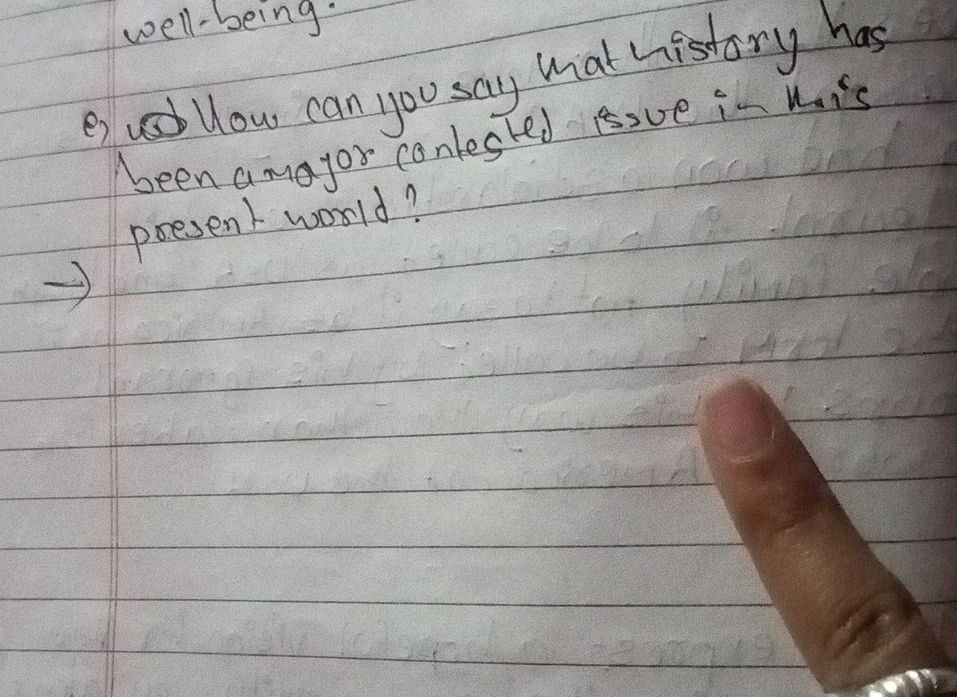 well-being.
e) How can you say that history has
been a major contested issue in this
present world?
→